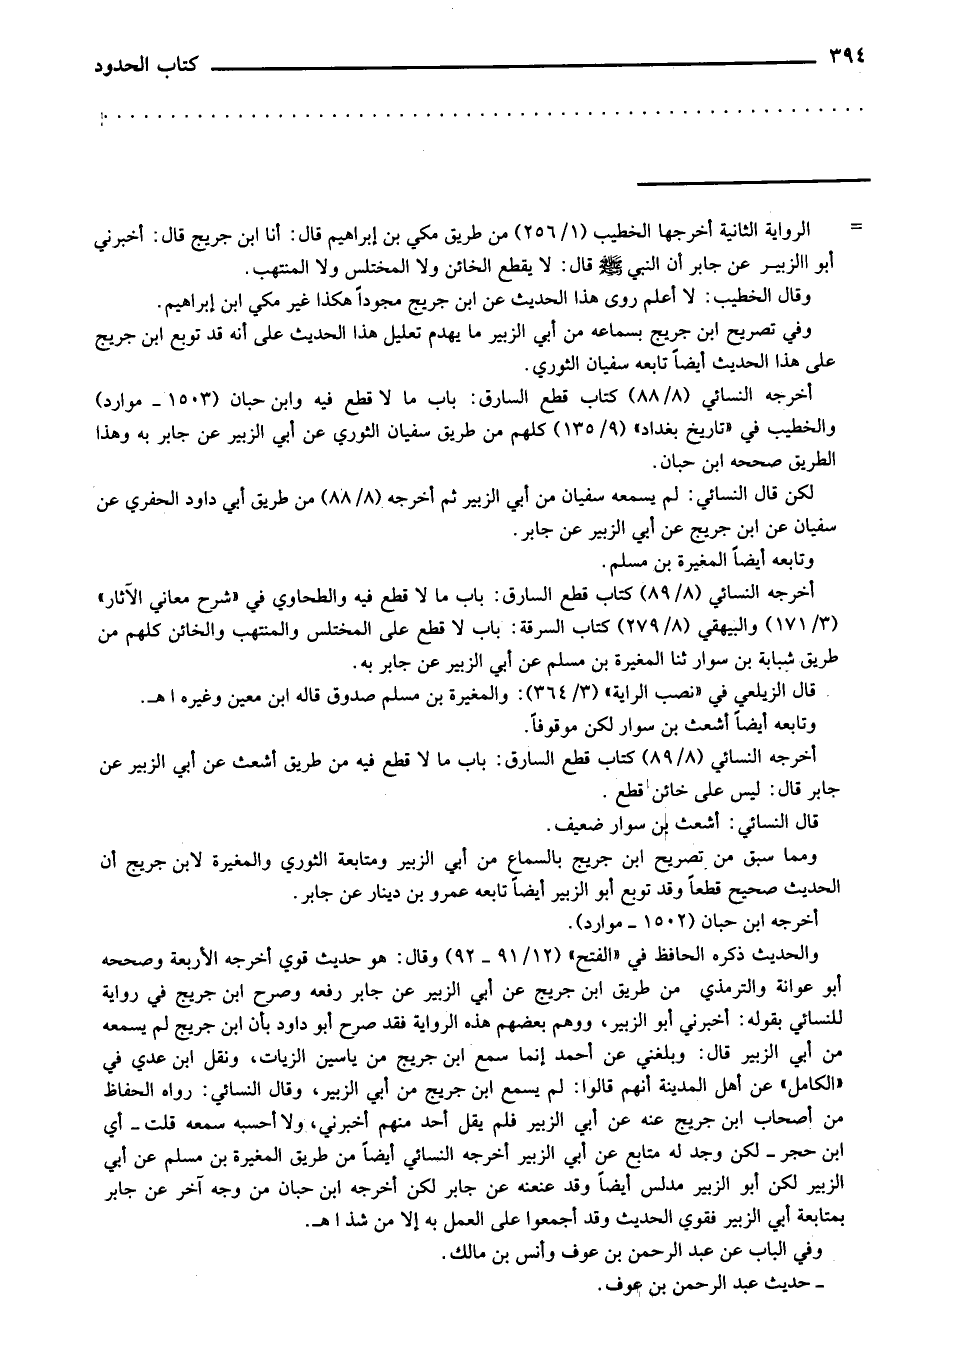 ٣٩٤ كتاب الحدود
= الرواية الثانية أخرجها الخطيب (١/ ٢٥٦) من طريق مكي بن إبراهيم قال: أنا ابن جريج قال: أخبرني
أبو االزبيـر عن جابر أن النبي ﷺ قال: لا يقطع الخائن ولا المختلس ولا المنتهب.
وقال الخطيب: لا أعلم روى هذا الحديث عن ابن جريج مجوداً هكذا غير مكي ابن إبراهيم.
وفي تصريح ابن جريج بسماعه من أبي الزبير ما يهدم تعليل هذا الحديث على أنه قد توبع ابن جريج
على هذا الحديث أيضاً تابعه سفيان الثوري.
أخرجه النسائي (٨/ ٨٨) كتاب قطع السارق: باب ما لا قطع فيه وابن حبان (١٥٠٣ ـ موارد)
والخطيب في «تاريخ بغداد» (٩/ ١٣٥) كلهم من طريق سفيان الثوري عن أبي الزبير عن جابر به وهذا
الطريق صححه ابن حبان.
لكن قال النسائي: لم يسمعه سفيان من أبي الزبير ثم أخرجه (٨/ ٨٨) من طريق أبي داود الحفري عن
سفيان عن ابن جريج عن أبي الزبير عن جابر.
وتابعه أيضاً المغيرة بن مسلم.
أخرجه النسائي (٨/ ٨٩) كتاب قطع السارق: باب ما لا قطع فيه والطحاوي في «شرح معاني الآثار»
(٣/ ١٧١) والبيهقي (٨/ ٢٧٩) كتاب السرقة: باب لا قطع على المختلس والمنتهب والخائن كلهم من
طريق شبابة بن سوار ثنا المغيرة بن مسلم عن أبي الزبير عن جابر به.
قال الزيلعي في «نصب الراية» (٣/ ٣٦٤): والمغيرة بن مسلم صدوق قاله ابن معين وغيره ا هـ.
وتابعه أيضاً أشعث بن سوار لكن موقوفاً.
أخرجه النسائي (٨/ ٨٩) كتاب قطع السارق: باب ما لا قطع فيه من طريق أشعث عن أبي الزبير عن
جابر قال: ليس على خائن قطع .
قال النسائي: أشعث بن سوار ضعيف.
ومما سبق من تصريح ابن جريج بالسماع من أبي الزبير ومتابعة الثوري والمغيرة لابن جريج أن
الحديث صحيح قطعاً وقد توبع أبو الزبير أيضاً تابعه عمرو بن دينار عن جابر.
أخرجه ابن حبان (١٥٠٢ ـ موارد).
والحديث ذكره الحافظ في «الفتح» (١٢/ ٩١ ـ ٩٢) وقال: هو حديث قوي أخرجه الأربعة وصححه
أبو عوانة والترمذي من طريق ابن جريج عن أبي الزبير عن جابر رفعه وصرح ابن جريج في رواية
للنسائي بقوله: أخبرني أبو الزبير، ووهم بعضهم هذه الرواية فقد صرح أبو داود بأن ابن جريج لم يسمعه
من أبي الزبير قال: وبلغني عن أحمد إنما سمع ابن جريج من ياسين الزيات، ونقل ابن عدي في
«الكامل» عن أهل المدينة أنهم قالوا: لم يسمع ابن جريج من أبي الزبير، وقال النسائي: رواه الحفاظ
من أصحاب ابن جريج عنه عن أبي الزبير فلم يقل أحد منهم أخبرني، ولا أحسبه سمعه قلت ـ أي
ابن حجر ـ لكن وجد له متابع عن أبي الزبير أخرجه النسائي أيضاً من طريق المغيرة بن مسلم عن أبي
الزبير لكن أبو الزبير مدلس أيضاً وقد عنعنه عن جابر لكن أخرجه ابن حبان من وجه آخر عن جابر
بمتابعة أبي الزبير فقوي الحديث وقد أجمعوا على العمل به إلا من شذ ا هـ.
وفي الباب عن عبد الرحمن بن عوف وأنس بن مالك.
ـ حديث عبد الرحمن بن عوف.